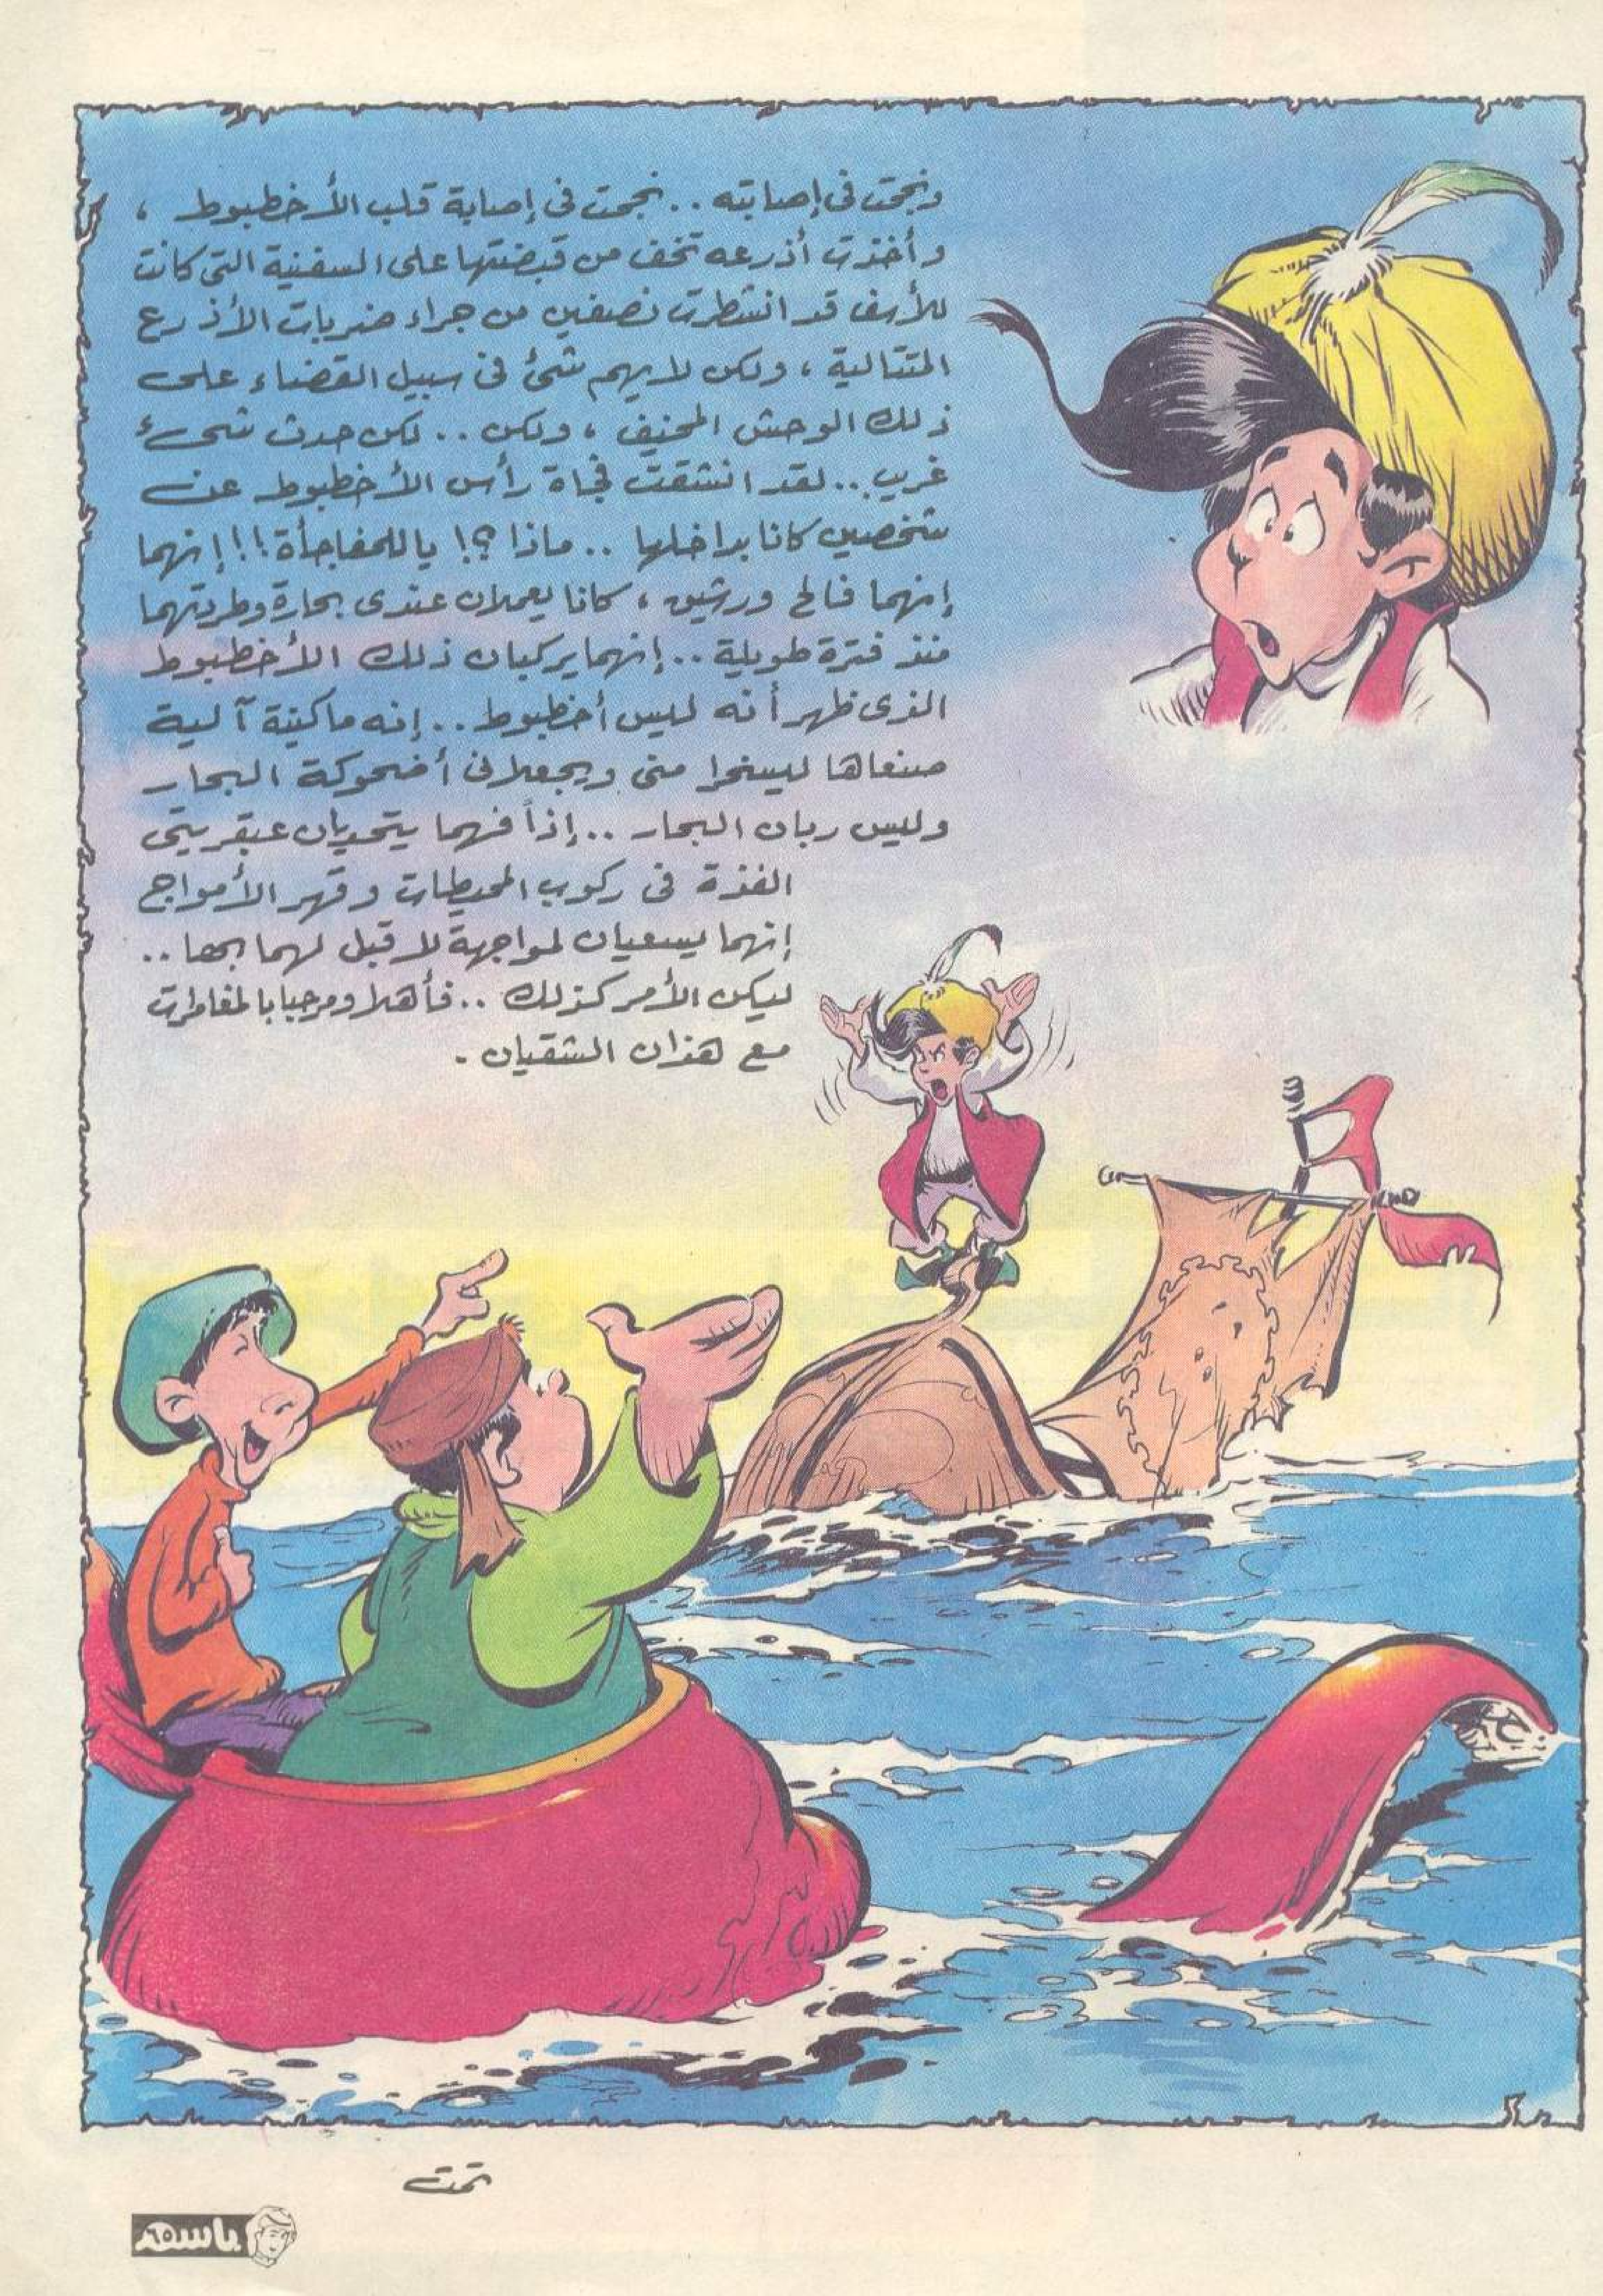 ونجحت فى إصابته .. نجحت فى إصابة قلب الأخطبوط ،
وأخذت أذرعه تخف من قبضتها على السفنية التى كانت
للأسف قد انشطرت نصفين من جراء ضربات الأذرع
المتتالية ، ولكن لا يهم شئ فى سبيل القضاء على
ذلك الوحش المخيف ، ولكن .. لكن حدث شىء
غريب .. لقد انشقت فجأة رأس الأخطبوط عن
شخصين كانا بداخلها .. ماذا ؟! يا للمفاجأة !! إنهما
إنهما فالح ورشيق ، كانا يعملان عندى بحارة وطردتهما
منذ فترة طويلة .. إنهما يركبان ذلك الأخطبوط
الذى ظهر أنه ليس أخطبوط .. إنه ماكينة آلية
صنعاها ليسخرا منى ويجعلانى أضحوكة البحار
وليس ربان البحار .. إذاً فهما يتحديان عبقريتى
الفذة فى ركوب المحيطات وقهر الأمواج
إنهما يسعيان لمواجهة لا قبل لهما بها ..
ليكن الأمر كذلك .. فأهلا ومرحبا بالمغامرات
مع هذان الشقيان .
تمت
باسم